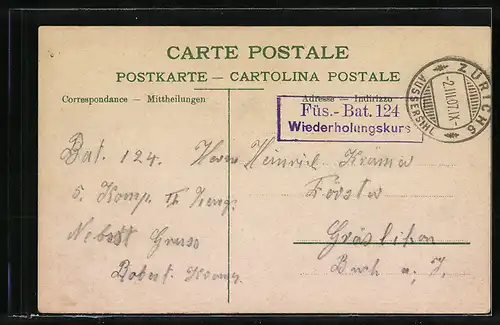 CARTE POSTALE
POSTKARTE – CARTOLINA POSTALE
Correspondance — Mittheilungen
Adresse — Indirizzo
Füs.-Bat. 124
Wiederholungskurs
ZÜRICH 6
-2.III.07.IX-
(AUSSERSIHL)
Bat. 124.
5. Komp.
Nebst Gruss
Robert
Herrn Heinrich Krämer
Förster
Gräslikon
Buch a. I.